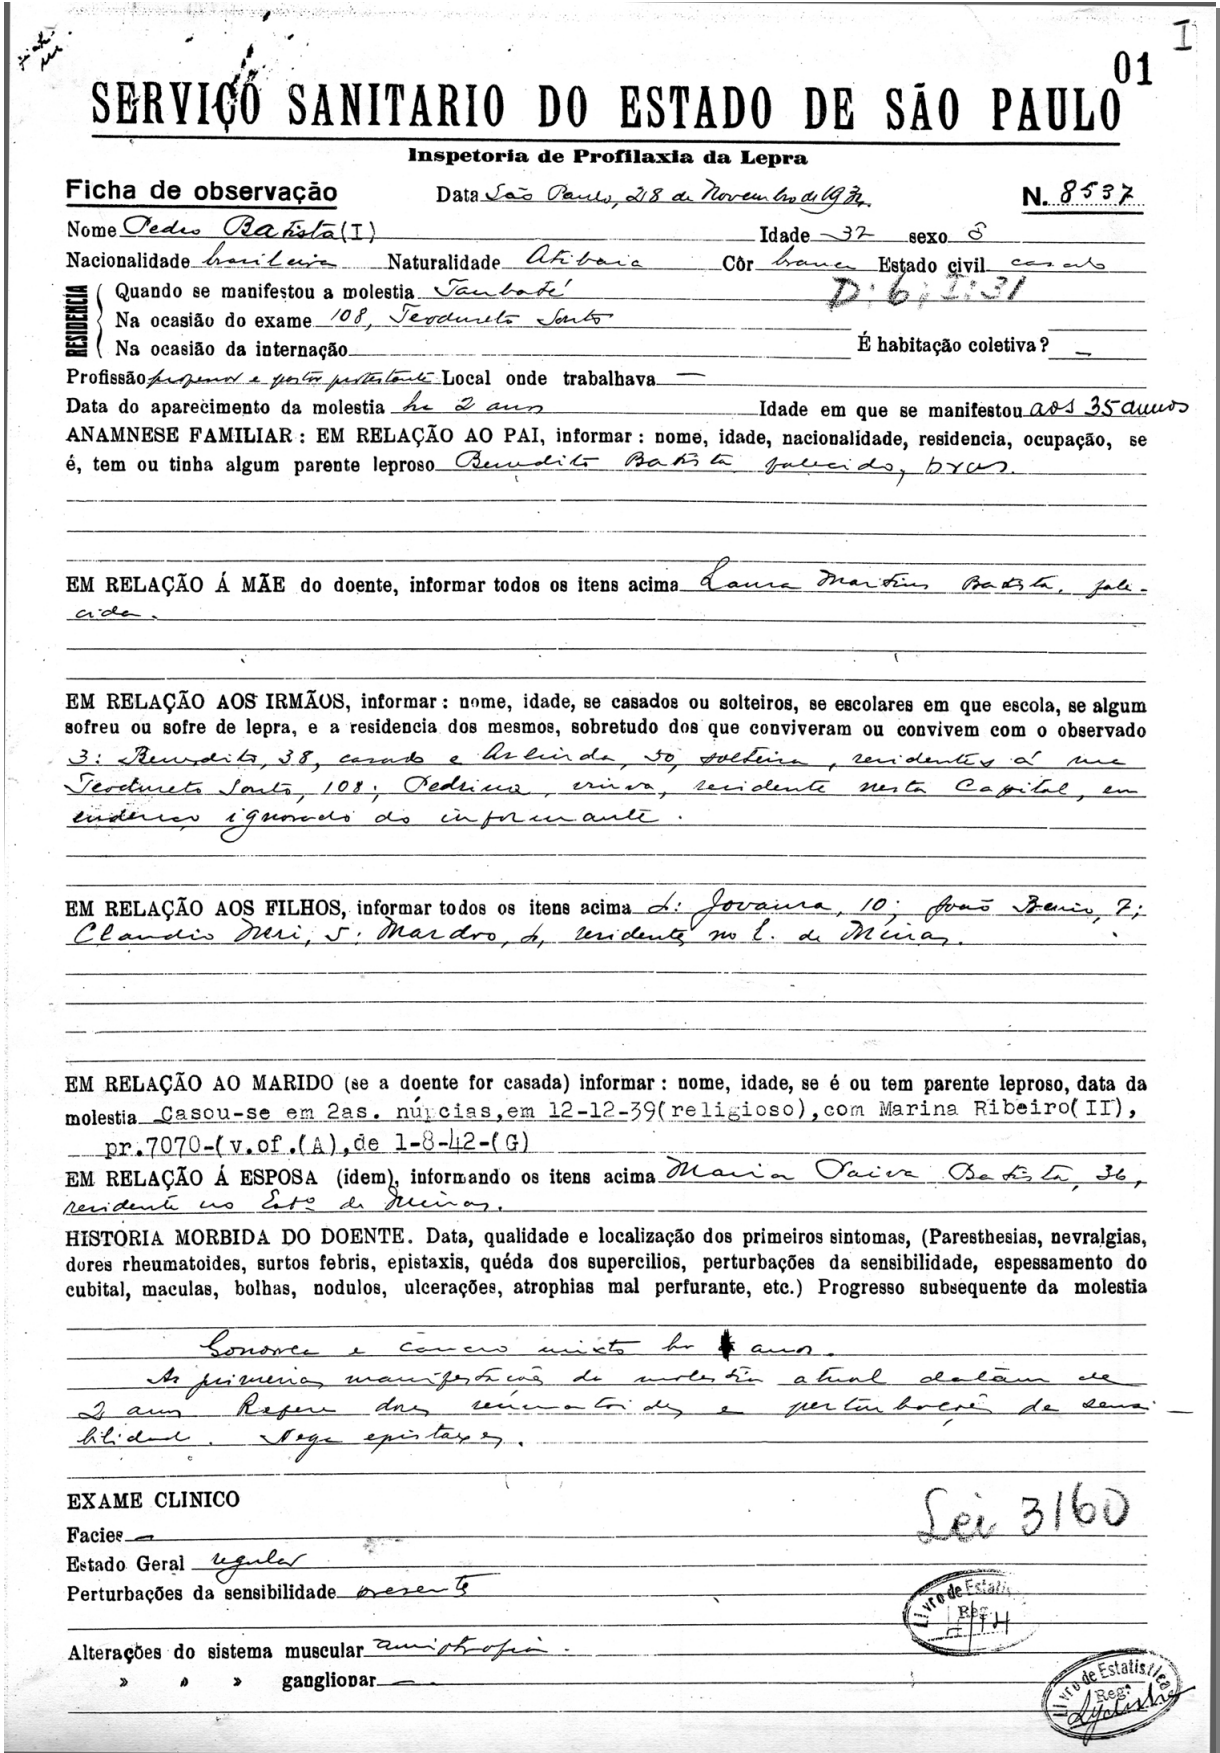 I
01
SERVIÇO SANITARIO DO ESTADO DE SÃO PAULO
Inspetoria de Profilaxia da Lepra
Ficha de observação Data São Paulo, 28 de Novembro de N. 8537
Nome Pedro Batista (I) Idade 37 sexo ♂
Nacionalidade brasileira Naturalidade Atibaia Côr branca Estado civil casado
RESIDENCIA
Quando se manifestou a molestia Taubaté D: 6: I: 31
Na ocasião do exame 108, Teodureto Souto
Na ocasião da internação É habitação coletiva? —
Profissão professor e pastor protestante Local onde trabalhava —
Data do aparecimento da molestia ha 2 anos Idade em que se manifestou aos 35 annos
ANAMNESE FAMILIAR : EM RELAÇÃO AO PAI, informar : nome, idade, nacionalidade, residencia, ocupação, se
é, tem ou tinha algum parente leproso Benedito Batista falecido, bras.
EM RELAÇÃO Á MÃE do doente, informar todos os itens acima Laura Martins Batista, fale-
cida.
EM RELAÇÃO AOS IRMÃOS, informar : nome, idade, se casados ou solteiros, se escolares em que escola, se algum
sofreu ou sofre de lepra, e a residencia dos mesmos, sobretudo dos que conviveram ou convivem com o observado
3: Benedito, 38, casado e Arlinda, 50, solteira, residentes á rua
Teodureto Souto, 108; Pedrina, viuva, residente nesta Capital, em
endereço ignorado do informante.
EM RELAÇÃO AOS FILHOS, informar todos os itens acima 4: Jovanira, 10; João 7;
Claudio Neri, 5; 4, residentes no E. de Minas.
EM RELAÇÃO AO MARIDO (se a doente for casada) informar : nome, idade, se é ou tem parente leproso, data da
molestia Casou-se em 2as. núpcias,em 12-12-39(religioso),com Marina Ribeiro(II),
pr.7070-(v.of.(A),de 1-8-42-(G)
EM RELAÇÃO Á ESPOSA (idem), informando os itens acima Maria Paiva Batista, 36,
residente no Estº de Minas.
HISTORIA MORBIDA DO DOENTE. Data, qualidade e localização dos primeiros sintomas, (Paresthesias, nevralgias,
dores rheumatoides, surtos febris, epistaxis, quéda dos supercilios, perturbações da sensibilidade, espessamento do
cubital, maculas, bolhas, nodulos, ulcerações, atrophias mal perfurante, etc.) Progresso subsequente da molestia
Gonorrea e cancro mixto ha anos.
As primeiras manifestações da molestia atual datam de
2 anos Refere dores reumatoides e perturbações da sensi-
bilidade. Nega epistaxes.
EXAME CLINICO
Lei 3160
Facies —
Estado Geral regular
Perturbações da sensibilidade presente
Livro de Estati
Reg.
Alterações do sistema muscular amiotrofia.
» » » ganglionar —
Livro de Estatistica
Reg.